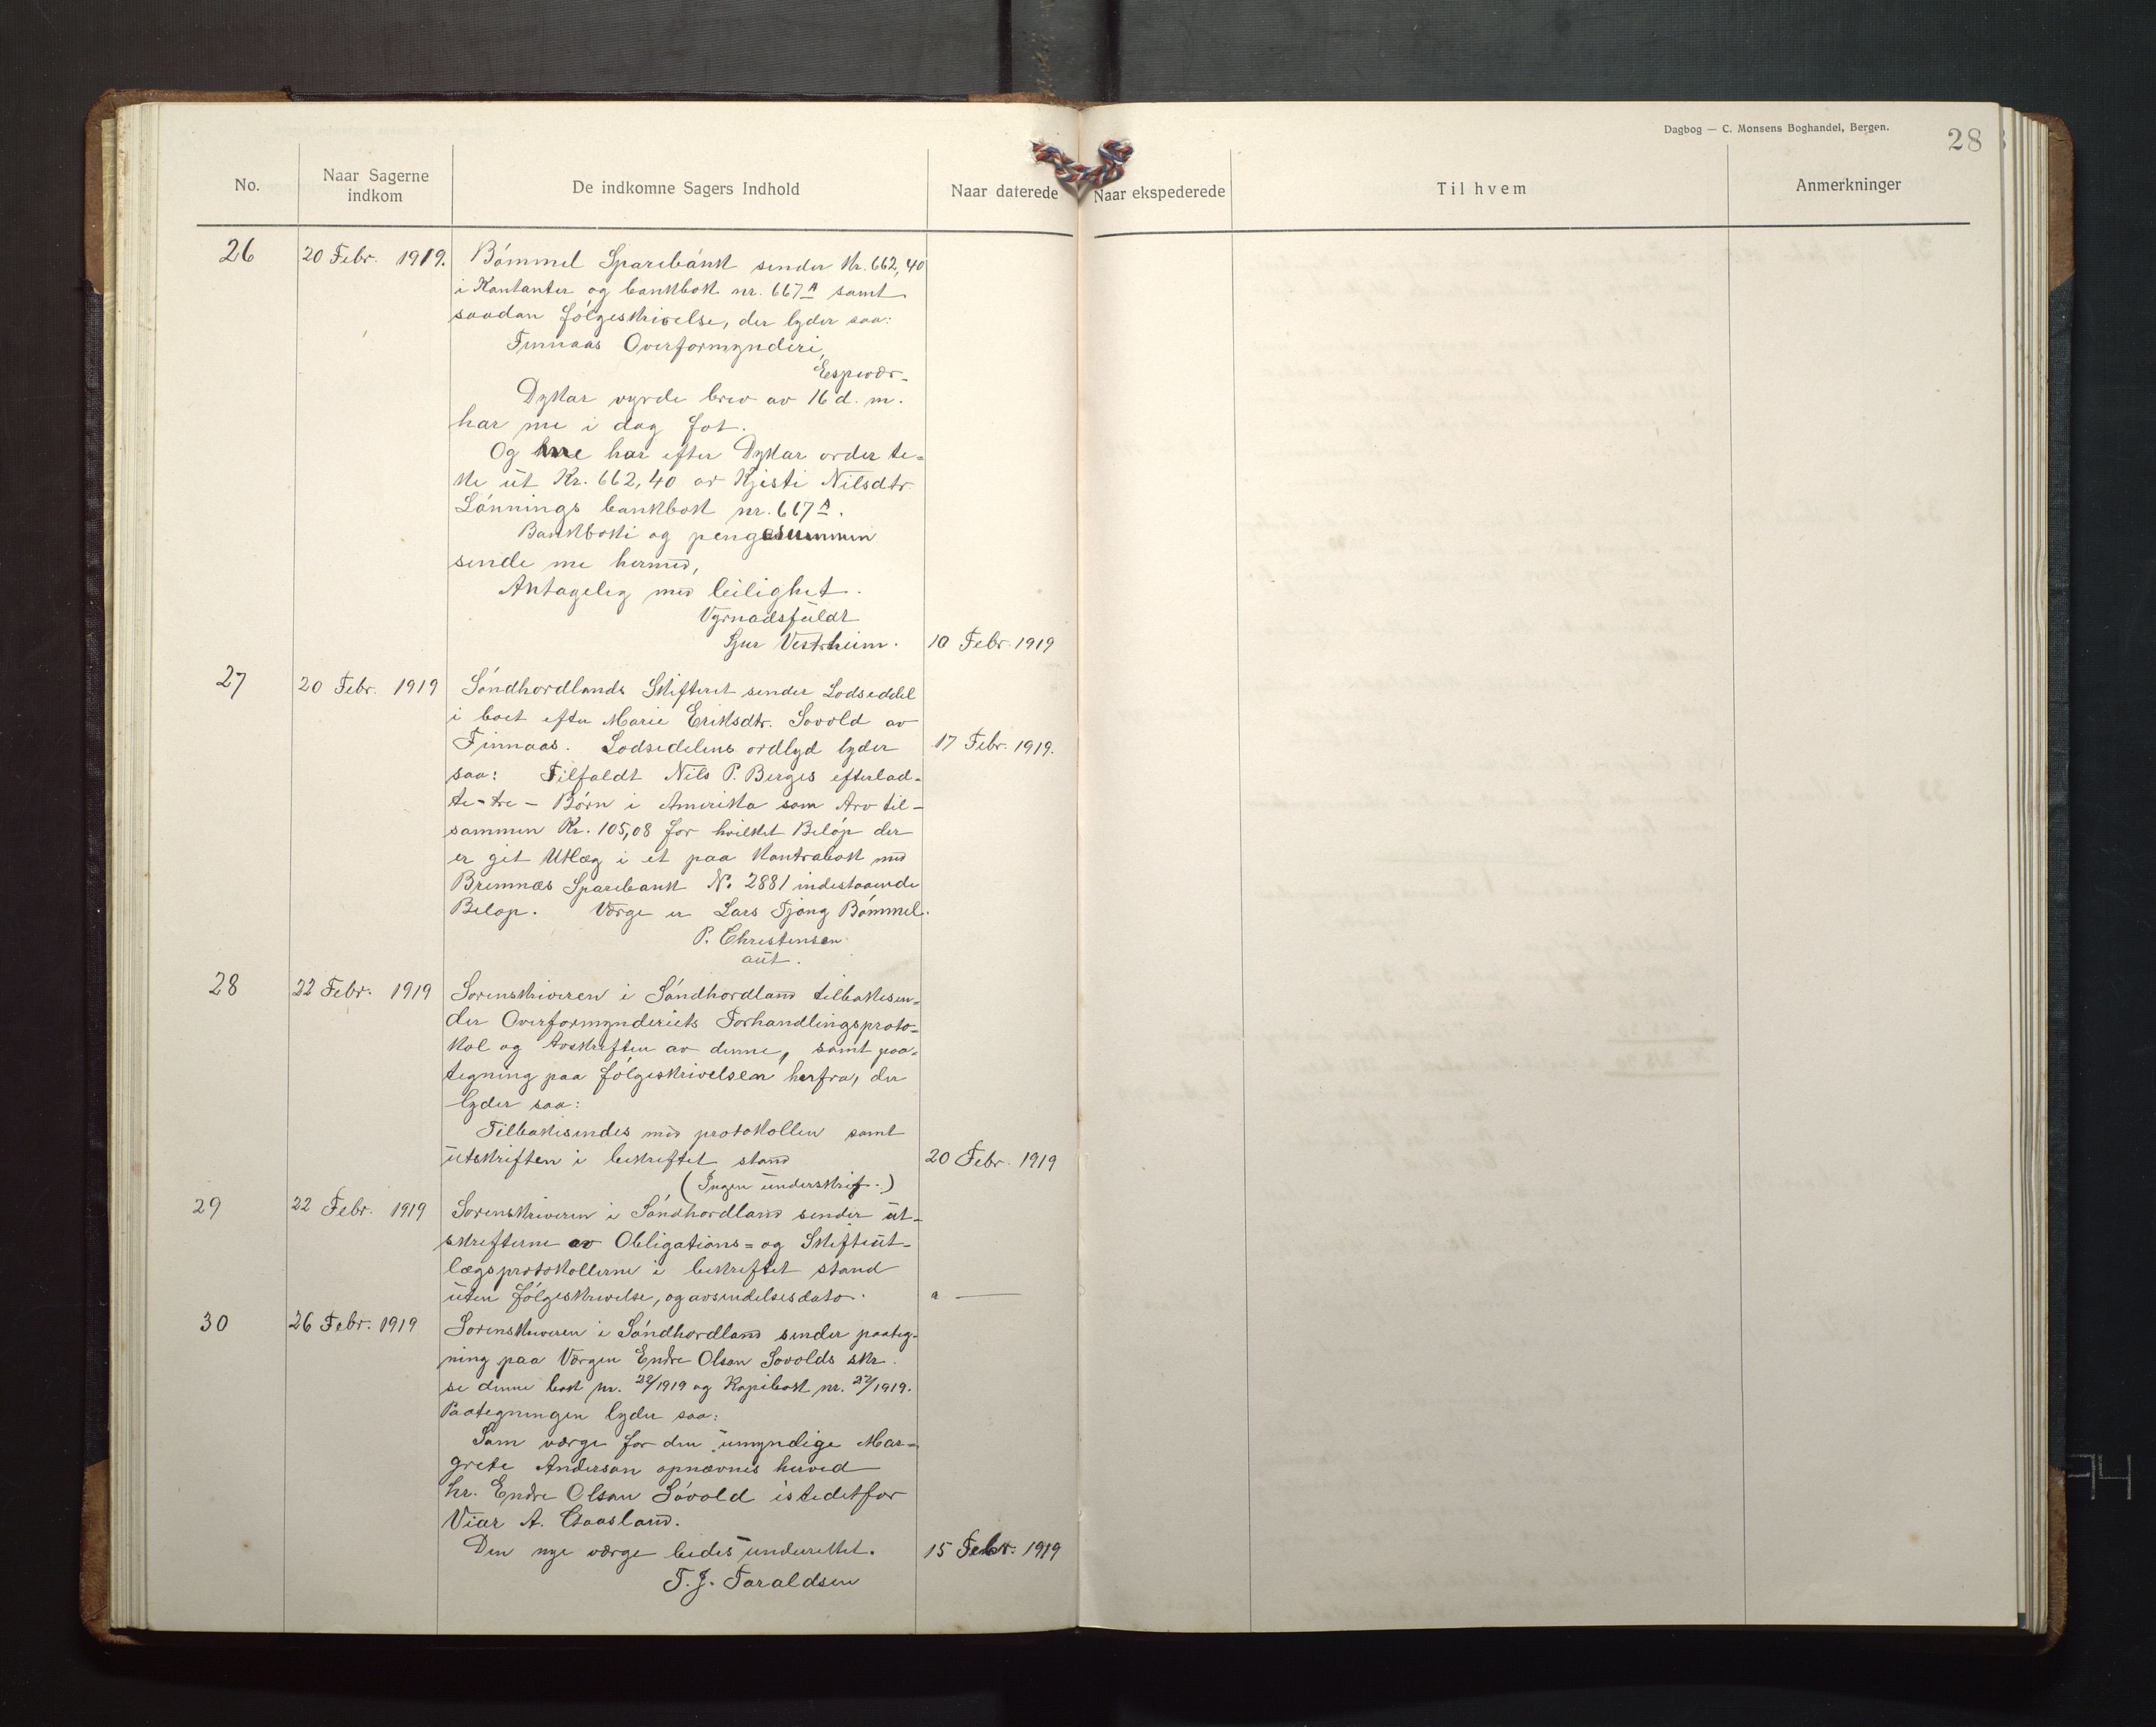 Dagbog — C. Monsens Boghandel, Bergen.
28
No.
Naar Sagerne indkom
De indkomne Sagers Indhold
Naar daterede
Naar ekspederede
Til hvem
Anmerkninger
26 20 Febr. 1919. Bómmel Sparebank sender Kr. 662,40
i Kontanter og bankbok nr. 667A samt
saadan fólgeskrivelse, der lyder saa:
Finnaas Overformynderi,
Espevær.
Dykar vyrde brev av 16 d. m.
har me i dag fot.
Og me har efter Dykar order te-
ke ut Kr. 662,40 av Kjisti Nilsdtr.
Lónnings bankbok nr. 667A.
Bankboki og pengesummen
sende me hermed,
Antageleg med leilighet.
Vyrnadsfuldt
Sjur Vestrheim. 10 Febr. 1919
27 20 Febr. 1919 Sóndhordlands Skifteret sender Lodseddel
i boet efter Marie Eriksdtr. Sovold av
Finnaas. Lodsedelens ordlyd lyder 17 Febr. 1919.
saa: Tilfaldt Nils P. Berges efterlad-
te - tre - Bórn i Amerika som Arv til-
sammen Kr. 105,08 for hvilket Belóp der
er git Utlæg i et paa Kontrabok med
Bremnæs Sparebank No 2881 indestaaende
Belop. Værge er Lars Tjong Bómmel.
P. Christensen
aut.
28 22 Febr. 1919 Sorenskriveren i Sóndhordland tilbakesen-
der Overformynderiets Forhandlingsproto-
kol og Avskriften av denne, samt paa-
tegning paa fólgeskrivelsen herfra, der
lyder saa:
Tilbakesendes med protokollen samt
utskriften i bekreftet stand 20 Febr. 1919
(Ingen underskrif.)
29 22 Febr. 1919 Sorenskriveren i Sóndhordland sender ut-
skrifterne av Obligations- og Skifteut-
lægsprotokollerne i bekreftet stand
uten fólgeskrivelse, og avsendelsesdato. a —
30 26 Febr. 1919 Sorenskriveren i Sóndhordland sender paateg-
ning paa Værgen Endre Olson Sovolds skr.
se denne bok nr. 22/1919 og Kopibok nr. 27/1919.
Paategningen lyder saa:
Som værge for den umyndige Mar-
grete Anderson opnævnes herved
hr. Endre Olson Sóvold istedetfor
Viar A. Gaasland.
Den nye værge bedes underrettet. 15 Febr. 1919
T. J. Taraldsen